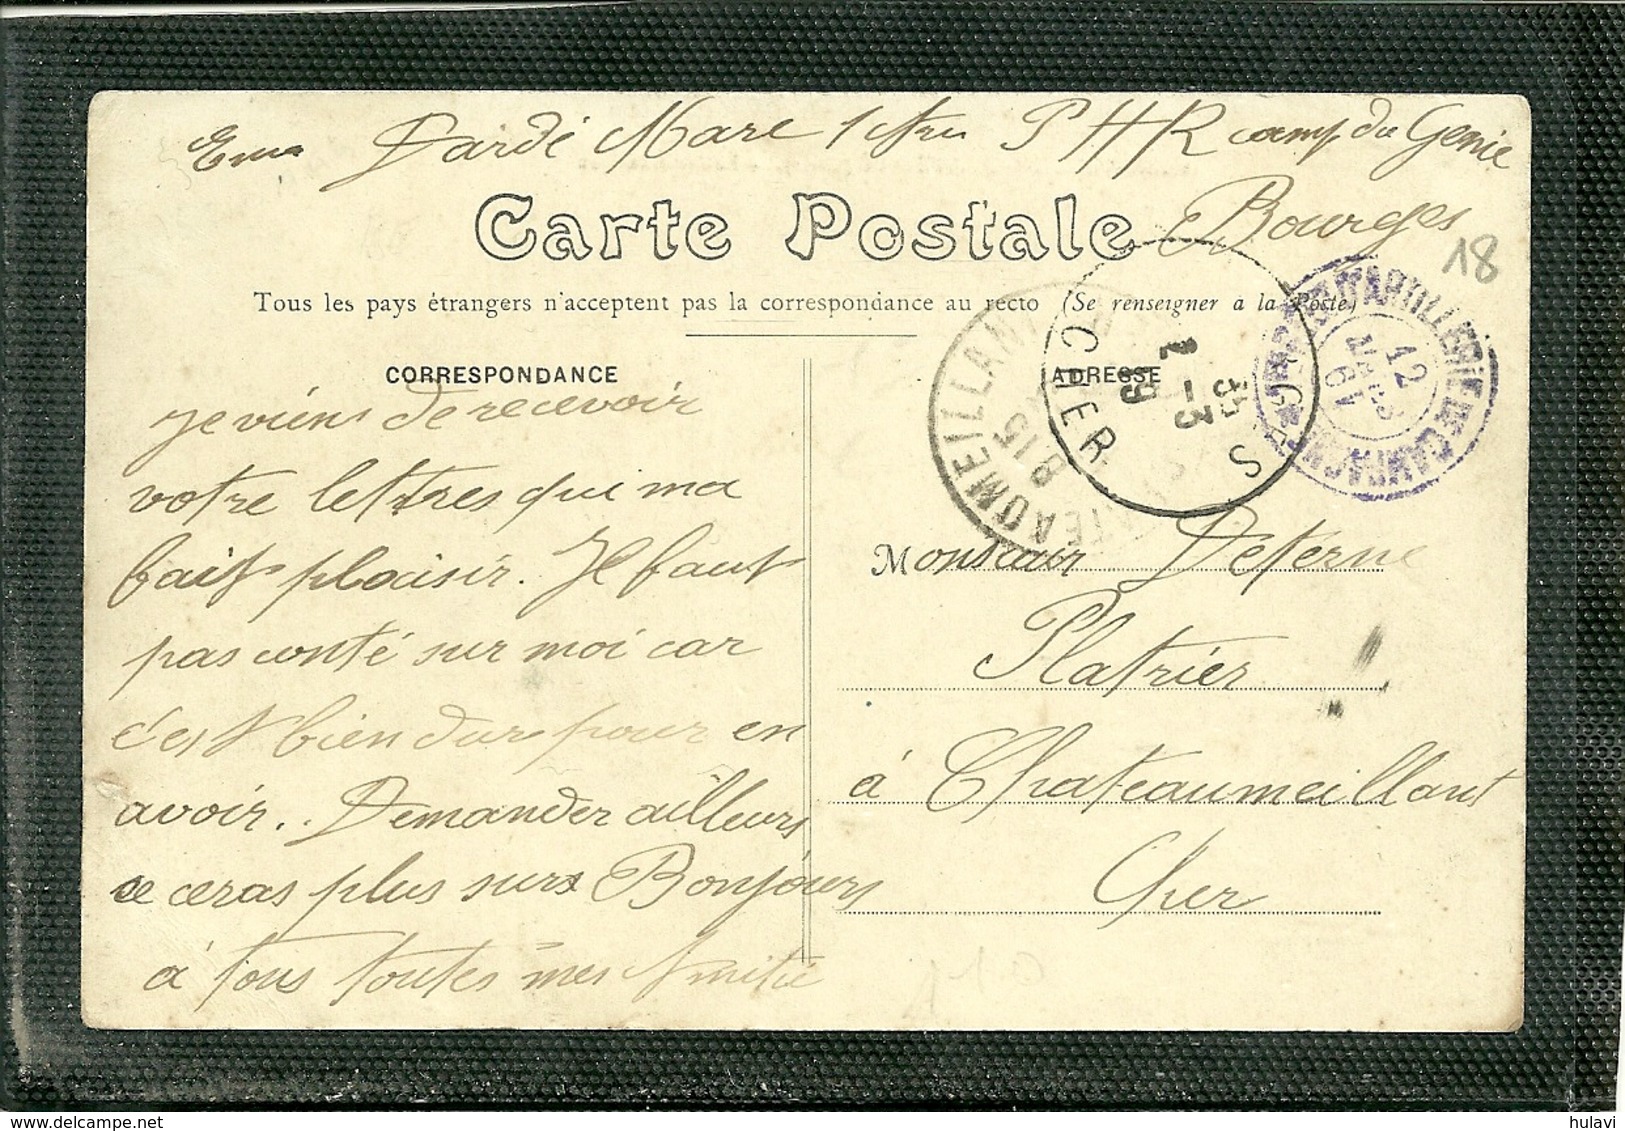 Dardé Marc 1 P H R camp du Genie
Bourges
18
Carte Postale
Tous les pays étrangers n'acceptent pas la correspondance au recto (Se renseigner à la Poste)
CORRESPONDANCE
ADRESSE
je viens de recevoir
votre lettres qui ma
fait plaisir. Il faut
pas conté sur moi car
c'est bien dur pour en
avoir.. Demander ailleurs
ce ceras plus surs Bonjours
à tous toutes mes Amitié
CHER
D'ARTILLERIE DE CAMPAGNE
12 MARS
Monsieur Deterne
Platrier
à Chateaumeillant
Cher
hulavi